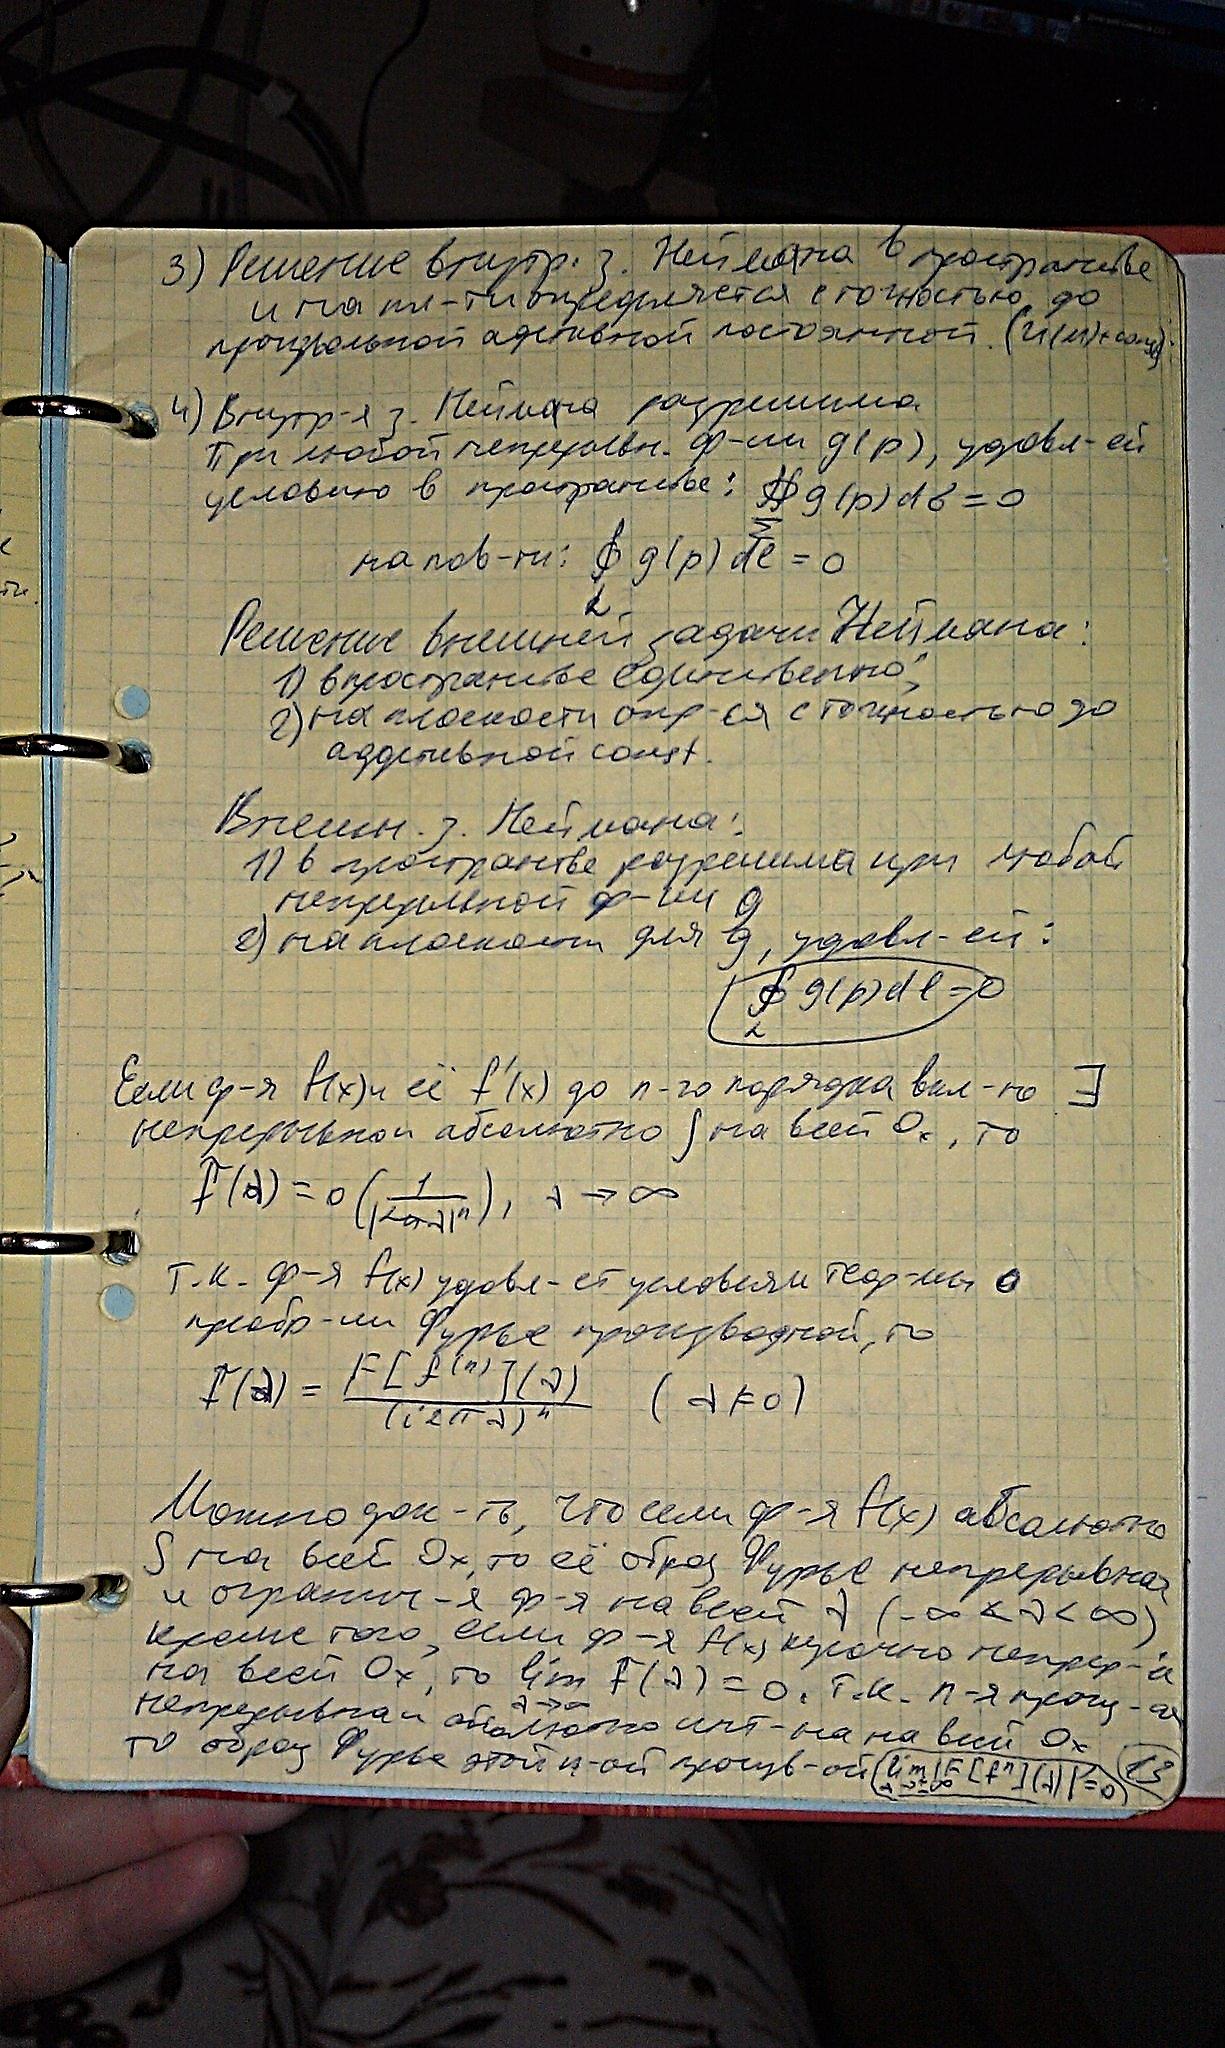 3) Решение внутр. з. Неймана в пространстве
и на пл-ти определяется с точностью до
произвольной адетивной постоянной. (U(M)+const);
4) Внутр-я з. Неймана разрешима
При любой непрерывн. ф-ии g(p), удовл-ей
условию в пространстве: ∯_Σ g(p)dσ = 0
на пов-ти: ∮_L g(p)dl = 0
Решение внешней задачи Неймана:
1) в пространстве единственно;
2) на плоскости опр-ся с точностью до
аддетивной const.
Внешн. з. Неймана:
1) в пространстве разрешима при любой
непрерывной ф-ии g
2) на плоскости для g, удовл-ей:
∮_L g(p)dl = 0
Если ф-я f(x) и её f'(x) до n-го порядка вкл-но ∃
непрерывной абсолютно ∫ на всей Ox, то
F(λ) = o(1/|2πλ|ⁿ), λ → ∞
т.к. ф-я f(x) удовл-ет условиям теор-мы о
преобр-ии Фурье производной, то
F(λ) = F[f⁽ⁿ⁾](λ)/(i2πλ)ⁿ (λ≠0)
Можно док-ть, что если ф-я f(x) абсолютно
∫ на всей Ox, то её образ Фурье непрерывная
и огранич-я ф-я на всей λ (-∞ < λ < ∞)
кроме того, если ф-я f(x) кусочно непрер-а
на всей Ox, то lim_{λ→∞} F(λ) = 0. т.к. n-я произ-ая
непрерывна и абсолютно инт-на на всей Ox
то образ Фурье этой n-ой произв-ой (lim_{λ→∞} |F[fⁿ](λ)| = 0)
13